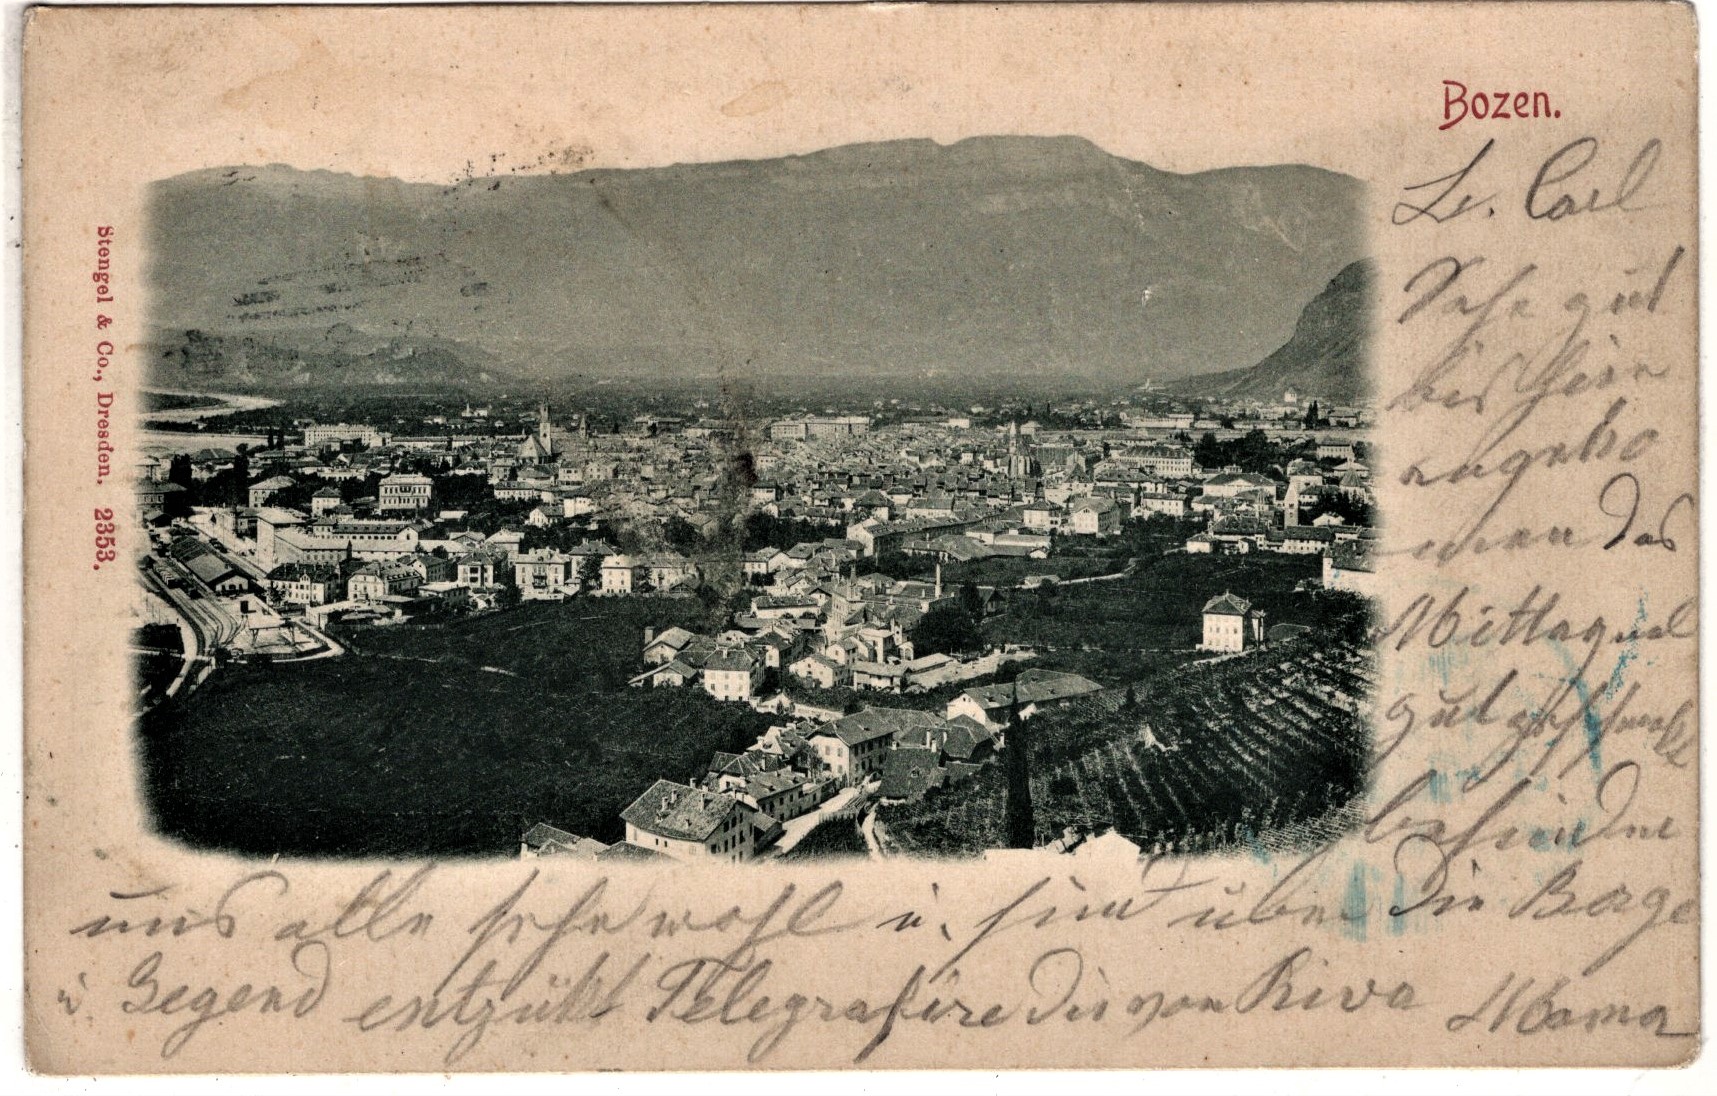 Bozen.
Stengel & Co., Dresden. 2353.
Lr. Carl
Sehr gut
bis hier
angeko
men das
Mittagmal
gut geschmekt
befinden
uns alle sehr wohl u. sind über die Berge
u Gegend entzükt Telegrafire dir von Riva Mama